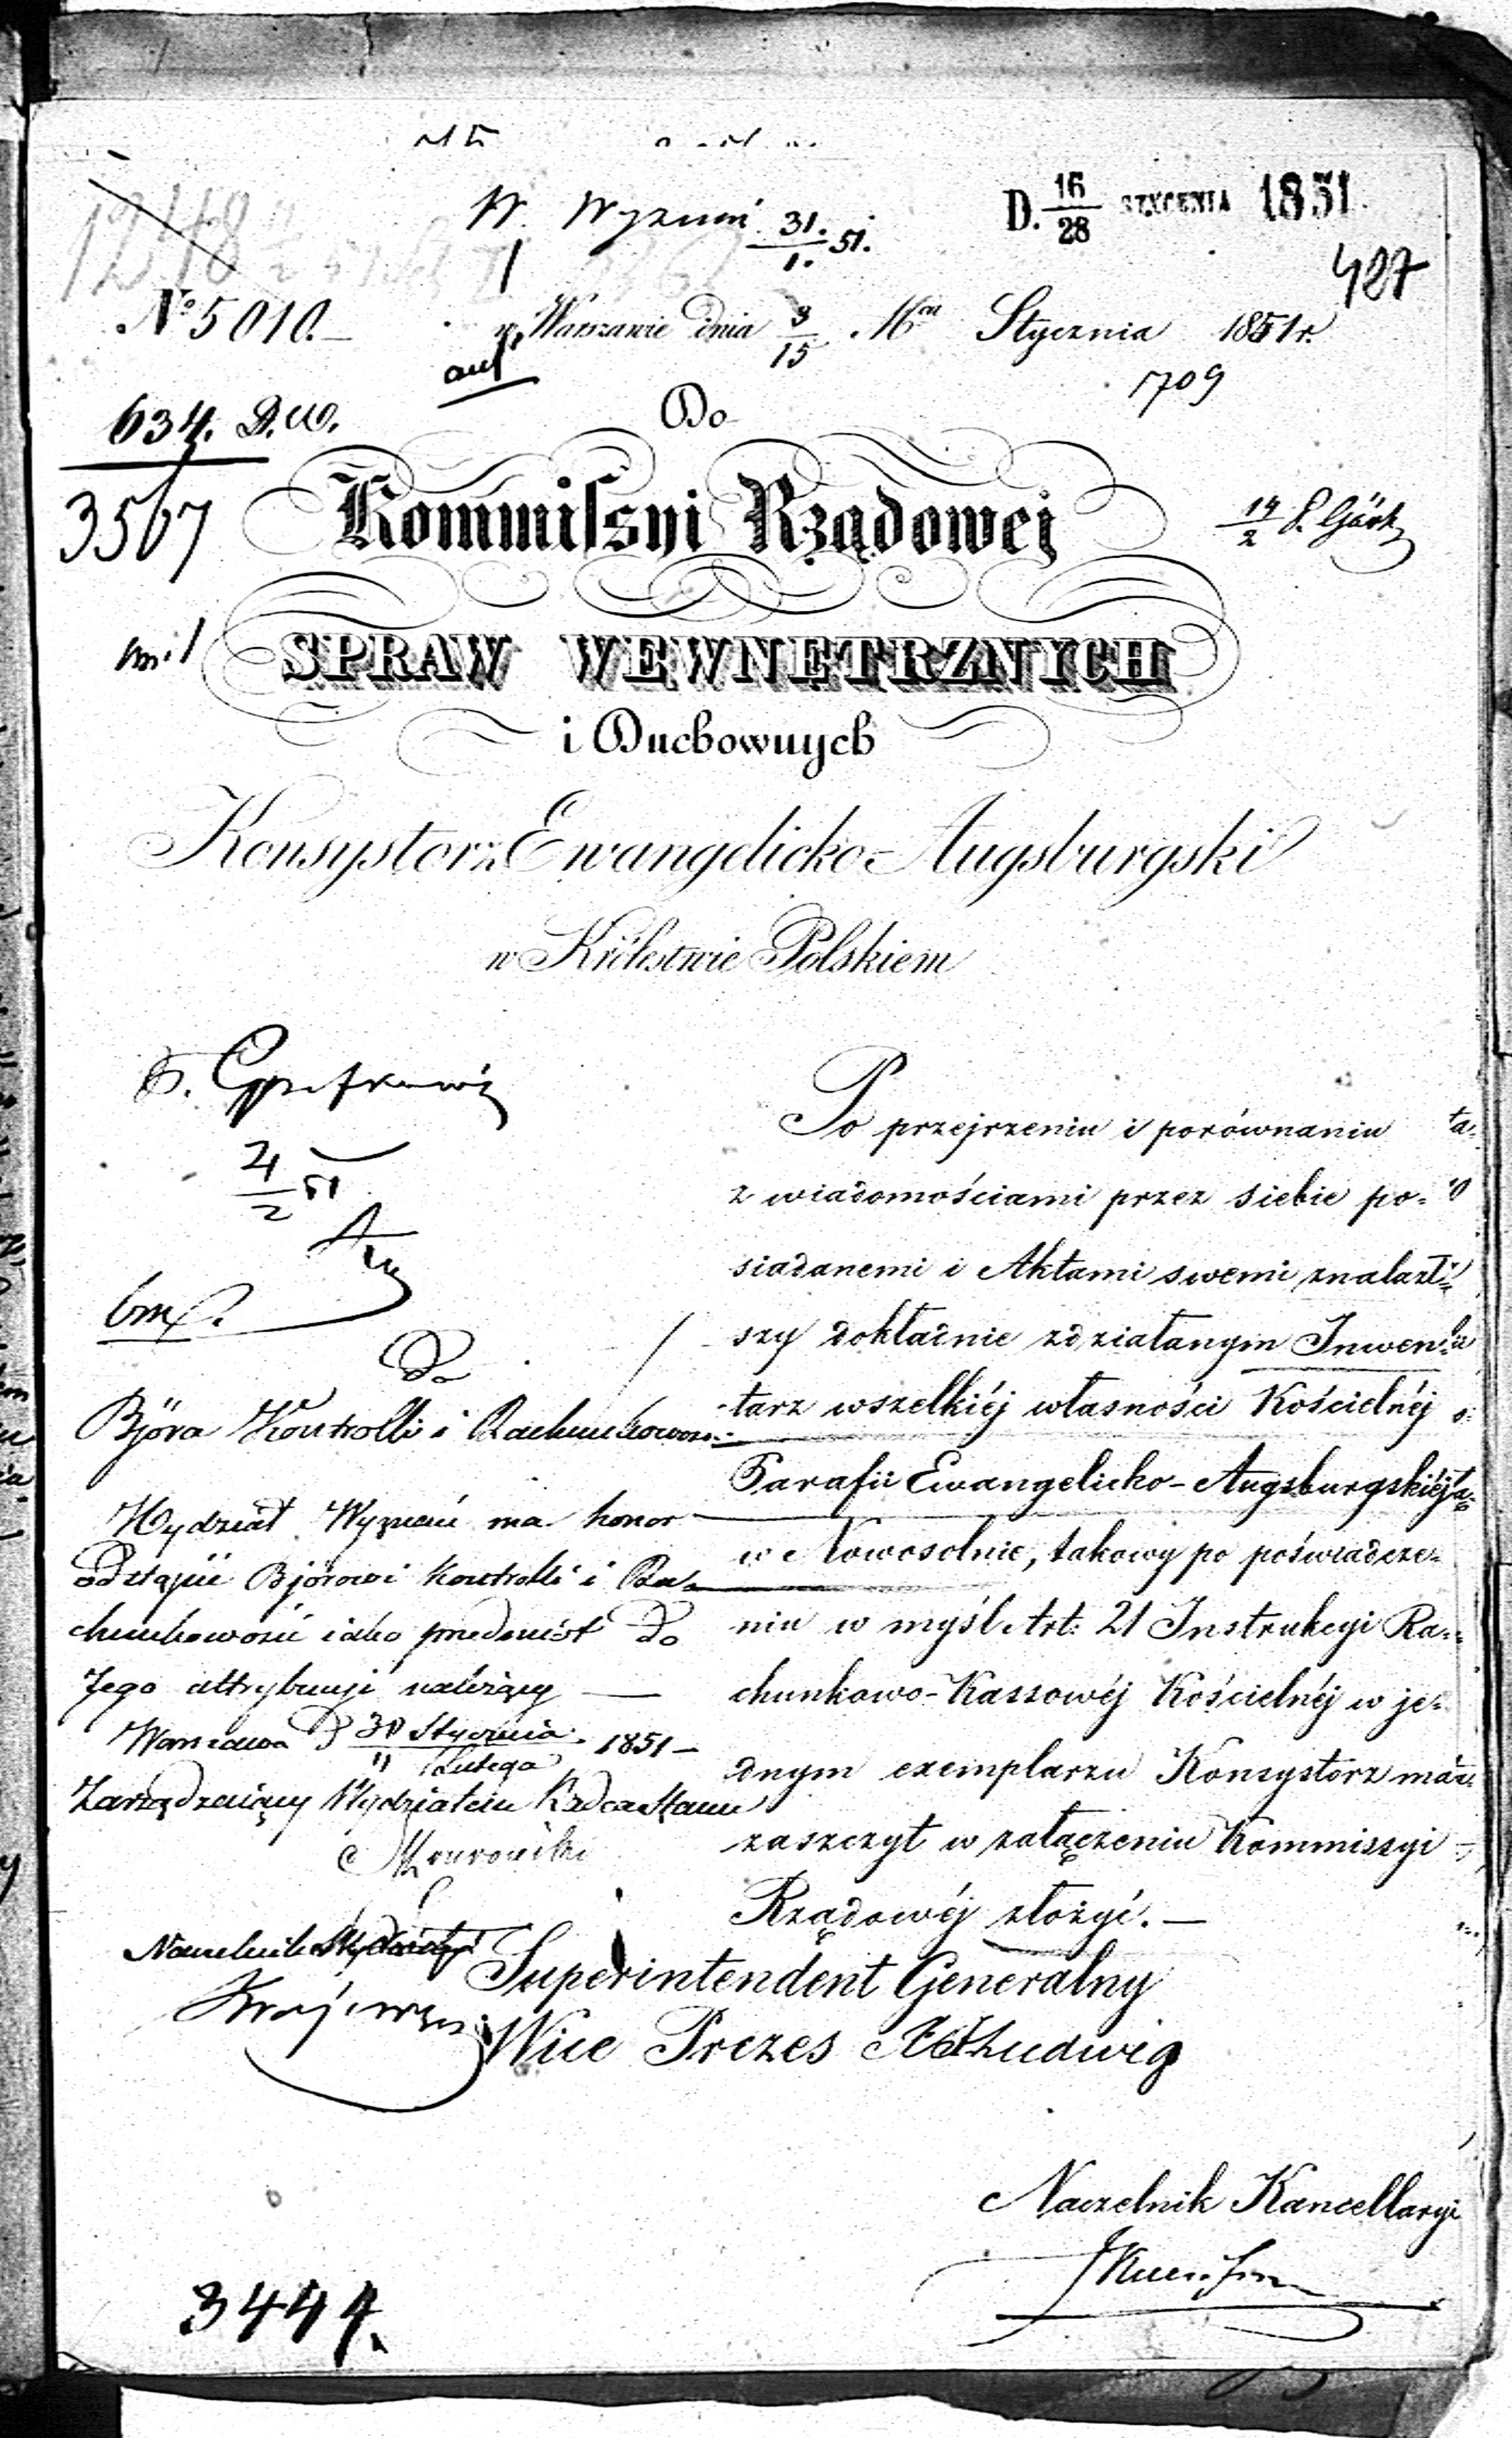 W. Wyznań 31./1. 51.
D. 16/28 STYCZNIA 1851
427
1248
№ 5010.
w Warszawie dnia 3/15 Mca Stycznia 1851 r.
1709
634. D.W.
3567
Do
Kommissyi Rządowej
SPRAW WEWNĘTRZNYCH
i Duchownych
Konsystorz Ewangelicko-Augsburgski
w Królestwie Polskiem
4/2 51
Do
Bjóra Kontrolli i Rachunkowości
Wydział Wyznań ma honor
odstąpić Bjórowi Kontrolli i Ra-
chunkowości iako przedmiot do
Jego attrybucyi należący —
Warszawa d 30 Stycznia/11 Lutego 1851 —
Zarządzaiący Wydziałem Radca Stanu
Naczelnik Wydziału
Po przejrzeniu i porównaniu
z wiadomościami przez siebie po-
siadanemi i Aktami swemi znalazł-
szy dokładnie zdziałanym Inwen-
tarz wszelkiéj własności Kościelnéj
Parafii Ewangelicko-Augsburgskiéj
w Nowosolnie, takowy po poświadcze-
niu w myśl Art: 21 Instrukcyi Ra-
chunkowo-Kassowéj Kościelnéj w je-
dnym exemplarzu Konsystorz ma
zaszczyt w załączeniu Kommissyi
Rządowéj złożyć. —
Superintendent Generalny
Wice Prezes Ludwig
Naczelnik Kancellaryi
3444.